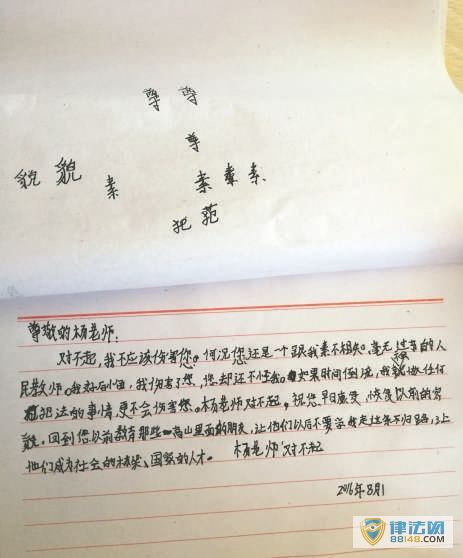 尊 尊
尊
貌 貌 素 素 素 素
犯 范
尊敬的杨老师：
对不起，我不应该伤害您。何况您还是一个跟我素不相知。毫无过节的人
民教师。我好后悔，我伤害了您，您却还不怪我。如果时间倒流，我会做任何
犯法的事情，更不会伤害您。杨老师对不起，祝您早日康复，恢复以前的容
貌，回到您以前教育那些高山里面的朋友，让他们以后不要走我走这条不归路，让
他们成为社会的栋梁、国家的人才。 杨老师 对不起
2016年8月1
律法网
88148.COM